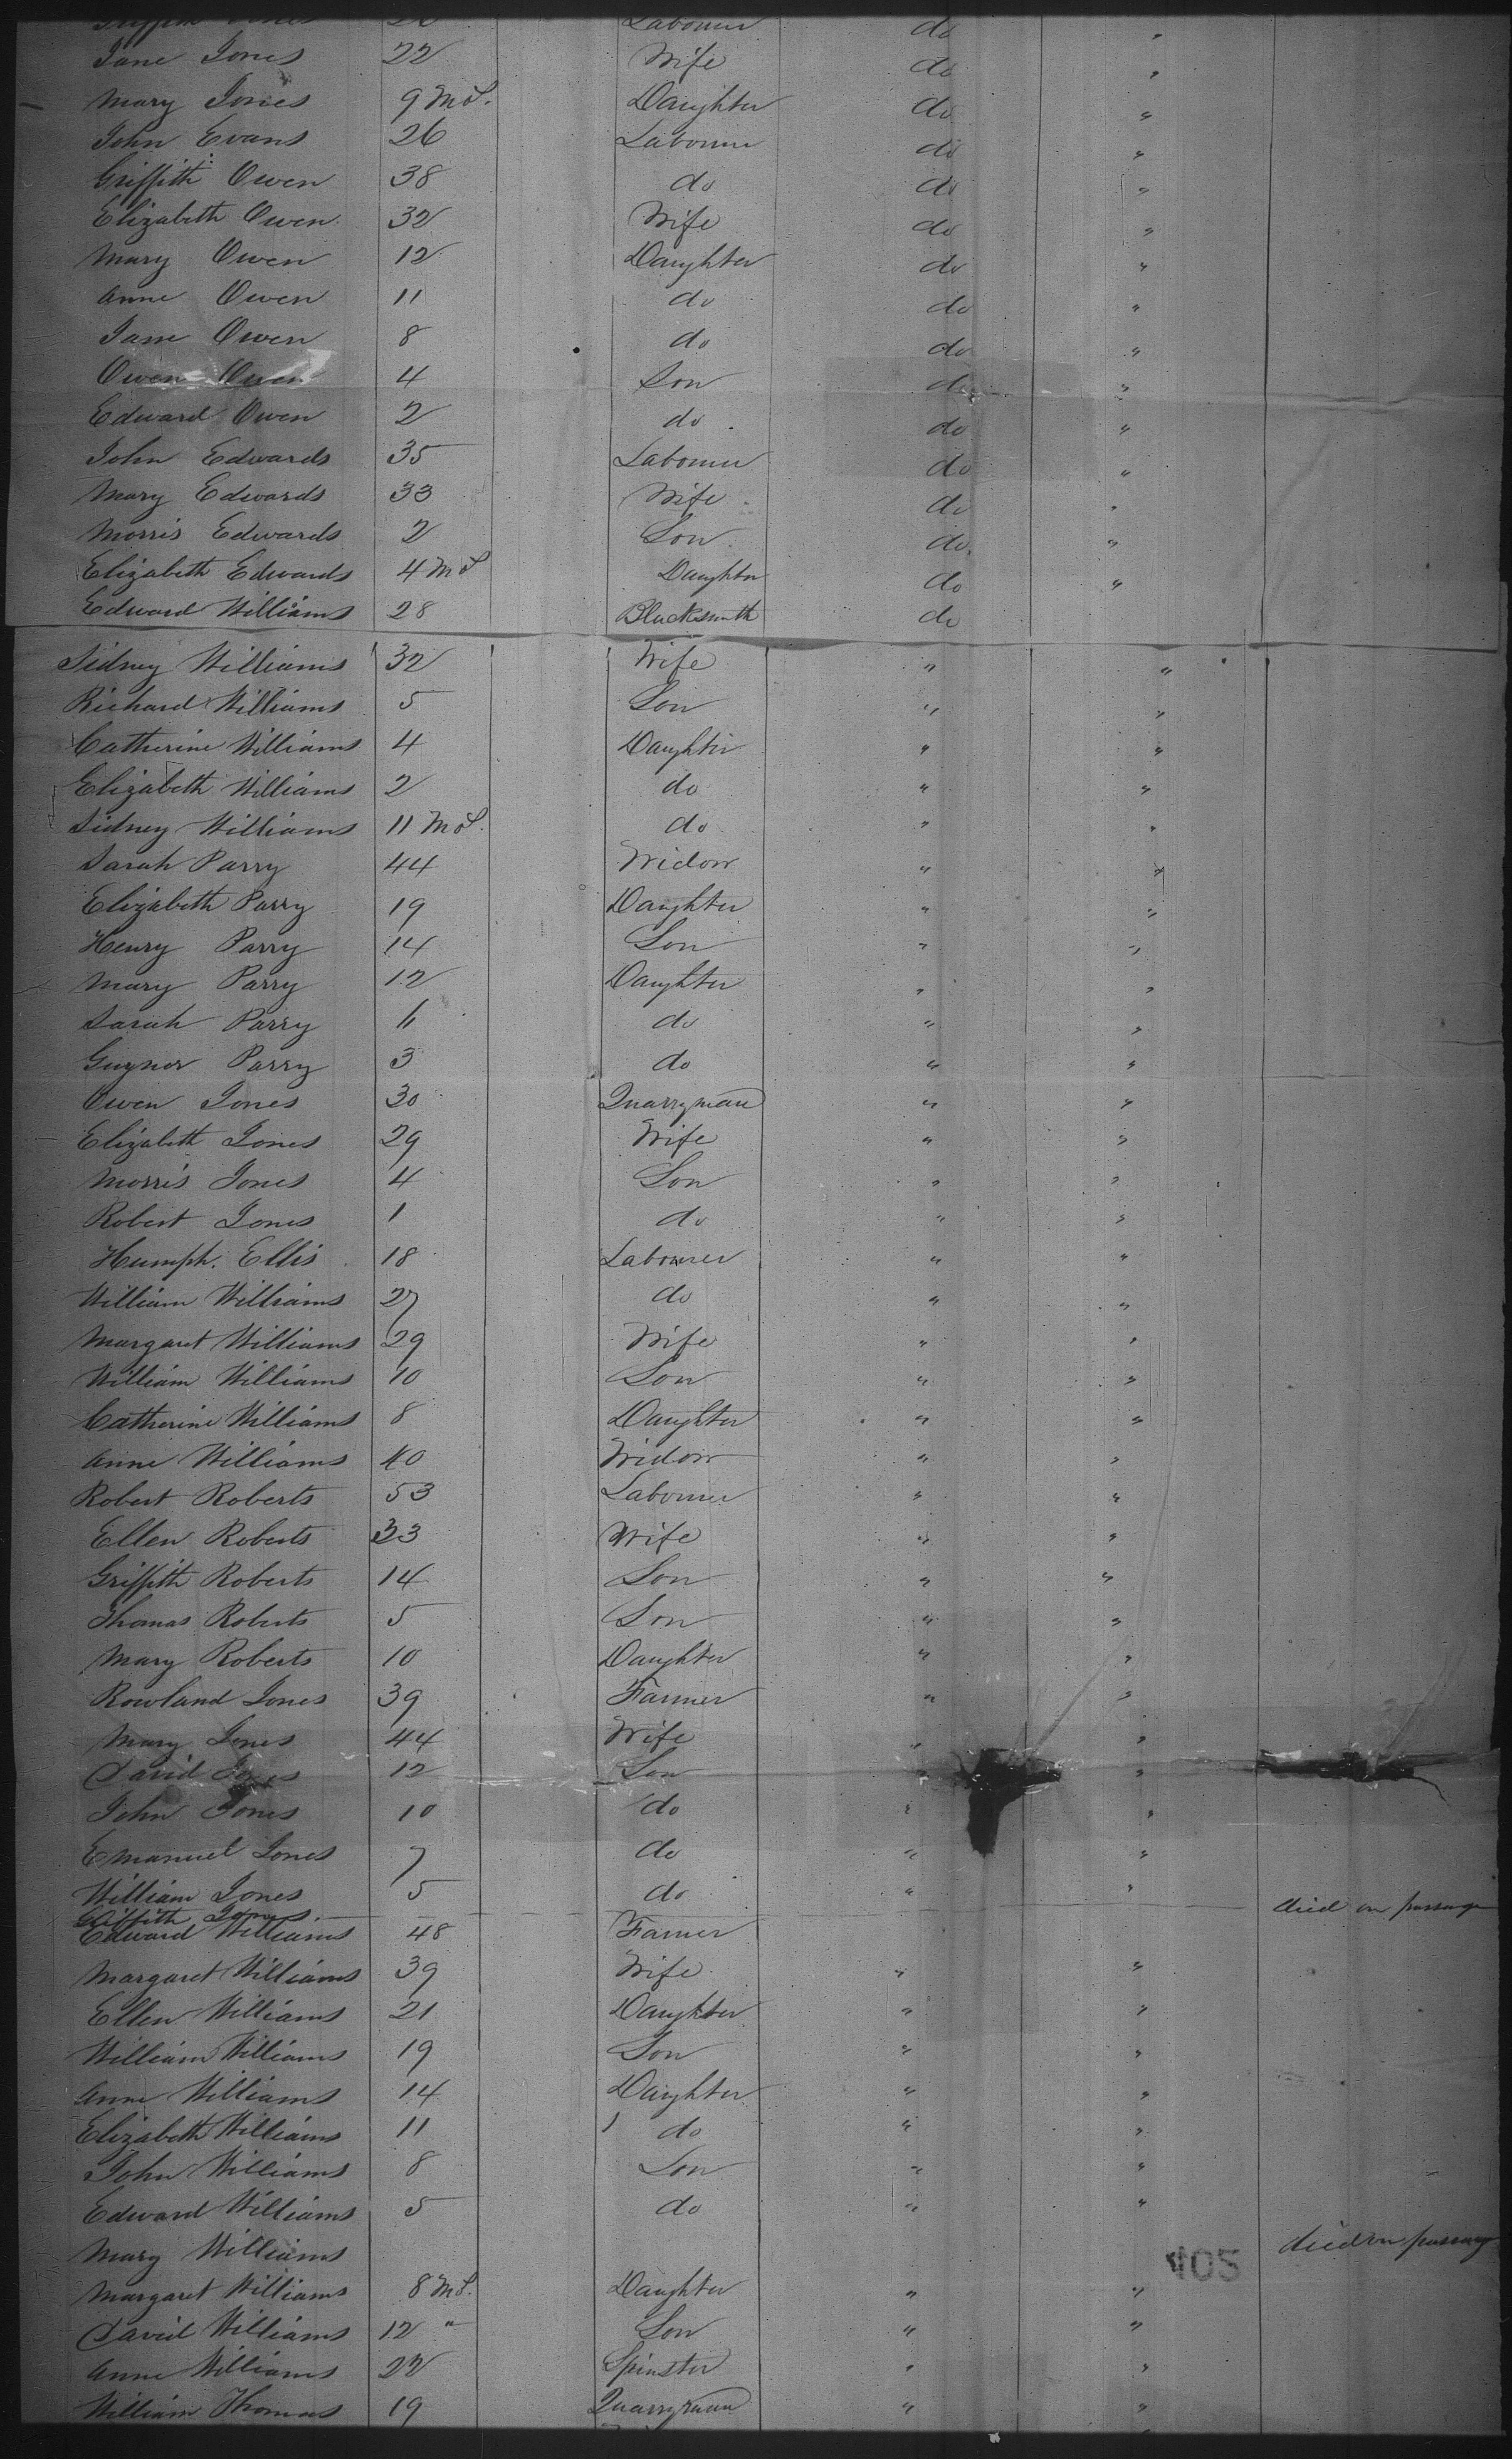 Griffith Jones Labourer do "
Jane Jones 22 Wife do "
Mary Jones 9 Mos. Daughter do "
John Evans 26 Labourer do "
Griffith Owen 38 do do "
Elizabeth Owen 32 Wife do "
Mary Owen 12 Daughter do "
Anne Owen 11 do do "
Jane Owen 8 do do "
Owen Owen 4 Son do "
Edward Owen 2 do do "
John Edwards 35 Labourer do "
Mary Edwards 33 Wife do "
Morris Edwards 2 Son do "
Elizabeth Edwards 4 Mos Daughter do "
Edward Williams 28 Blacksmith do
Sidney Williams 32 Wife " "
Richard Williams 5 Son " "
Catherine Williams 4 Daughter " "
Elizabeth Williams 2 do " "
Sidney Williams 11 Mos. do " "
Sarah Parry 44 Widow " "
Elizabeth Parry 19 Daughter " "
Henry Parry 14 Son " "
Mary Parry 12 Daughter " "
Sarah Parry 6 do " "
Guynor Parry 3 do " "
Owen Jones 30 Quarryman " "
Elizabeth Jones 29 Wife " "
Morris Jones 4 Son " "
Robert Jones 1 do " "
Humph. Ellis 18 Labourer " "
William Williams 27 do " "
Margaret Williams 29 Wife " "
William Williams 10 Son " "
Catherine Williams 8 Daughter " "
Anne Williams 40 Widow " "
Robert Roberts 53 Labourer " "
Ellen Roberts 33 Wife " "
Griffith Roberts 14 Son " "
Thomas Roberts 5 Son " "
Mary Roberts 10 Daughter " "
Rowland Jones 39 Farmer " "
Mary Jones 44 Wife " "
David Jones 12 Son " "
John Jones 10 do " "
Emanuel Jones 7 do " "
William Jones 5 do " "
Griffith Jones. died on passage
Edward Williams 48 Farmer
Margaret Williams 39 Wife " "
Ellen Williams 21 Daughter " "
William Williams 19 Son " "
Anne Williams 14 Daughter " "
Elizabeth Williams 11 do " "
John Williams 8 Son " "
Edward Williams 5 do " "
Mary Williams died on passage
105
Margaret Williams 8 Mos. Daughter " "
David Williams 12 " Son " "
Anne Williams 22 Spinster " "
William Thomas 19 Quarryman " "